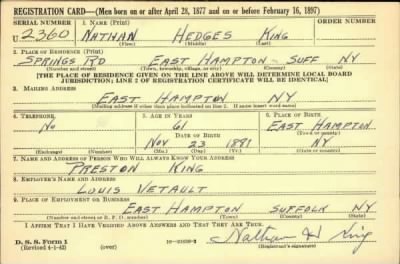 REGISTRATION CARD—(Men born on or after April 28, 1877 and on or before February 16, 1897)
SERIAL NUMBER 1. NAME (Print) ORDER NUMBER
U 2360 NATHAN HEDGES KING
(First) (Middle) (Last)
2. PLACE OF RESIDENCE (Print)
SPRINGS RD EAST HAMPTON SUFF NY
(Number and street) (Town, township, village, or city) (County) (State)
[THE PLACE OF RESIDENCE GIVEN ON THE LINE ABOVE WILL DETERMINE LOCAL BOARD
JURISDICTION; LINE 2 OF REGISTRATION CERTIFICATE WILL BE IDENTICAL]
3. MAILING ADDRESS
EAST HAMPTON NY
[Mailing address if other than place indicated on line 2. If same insert word same]
4. TELEPHONE 5. AGE IN YEARS 6. PLACE OF BIRTH
NO 61 EAST HAMPTON
DATE OF BIRTH (Town or county)
NOV 23 1881 NY
(Exchange) (Number) (Mo.) (Day) (Yr.) (State or country)
7. NAME AND ADDRESS OF PERSON WHO WILL ALWAYS KNOW YOUR ADDRESS
PRESTON KING
8. EMPLOYER'S NAME AND ADDRESS
LOUIS VETAULT
9. PLACE OF EMPLOYMENT OR BUSINESS
EAST HAMPTON SUFFOLK NY
(Number and street or R. F. D. number) (Town) (County) (State)
I AFFIRM THAT I HAVE VERIFIED ABOVE ANSWERS AND THAT THEY ARE TRUE.
D. S. S. Form 1
(Revised 4-1-42) (over) Nathan H King
(Registrant's signature)